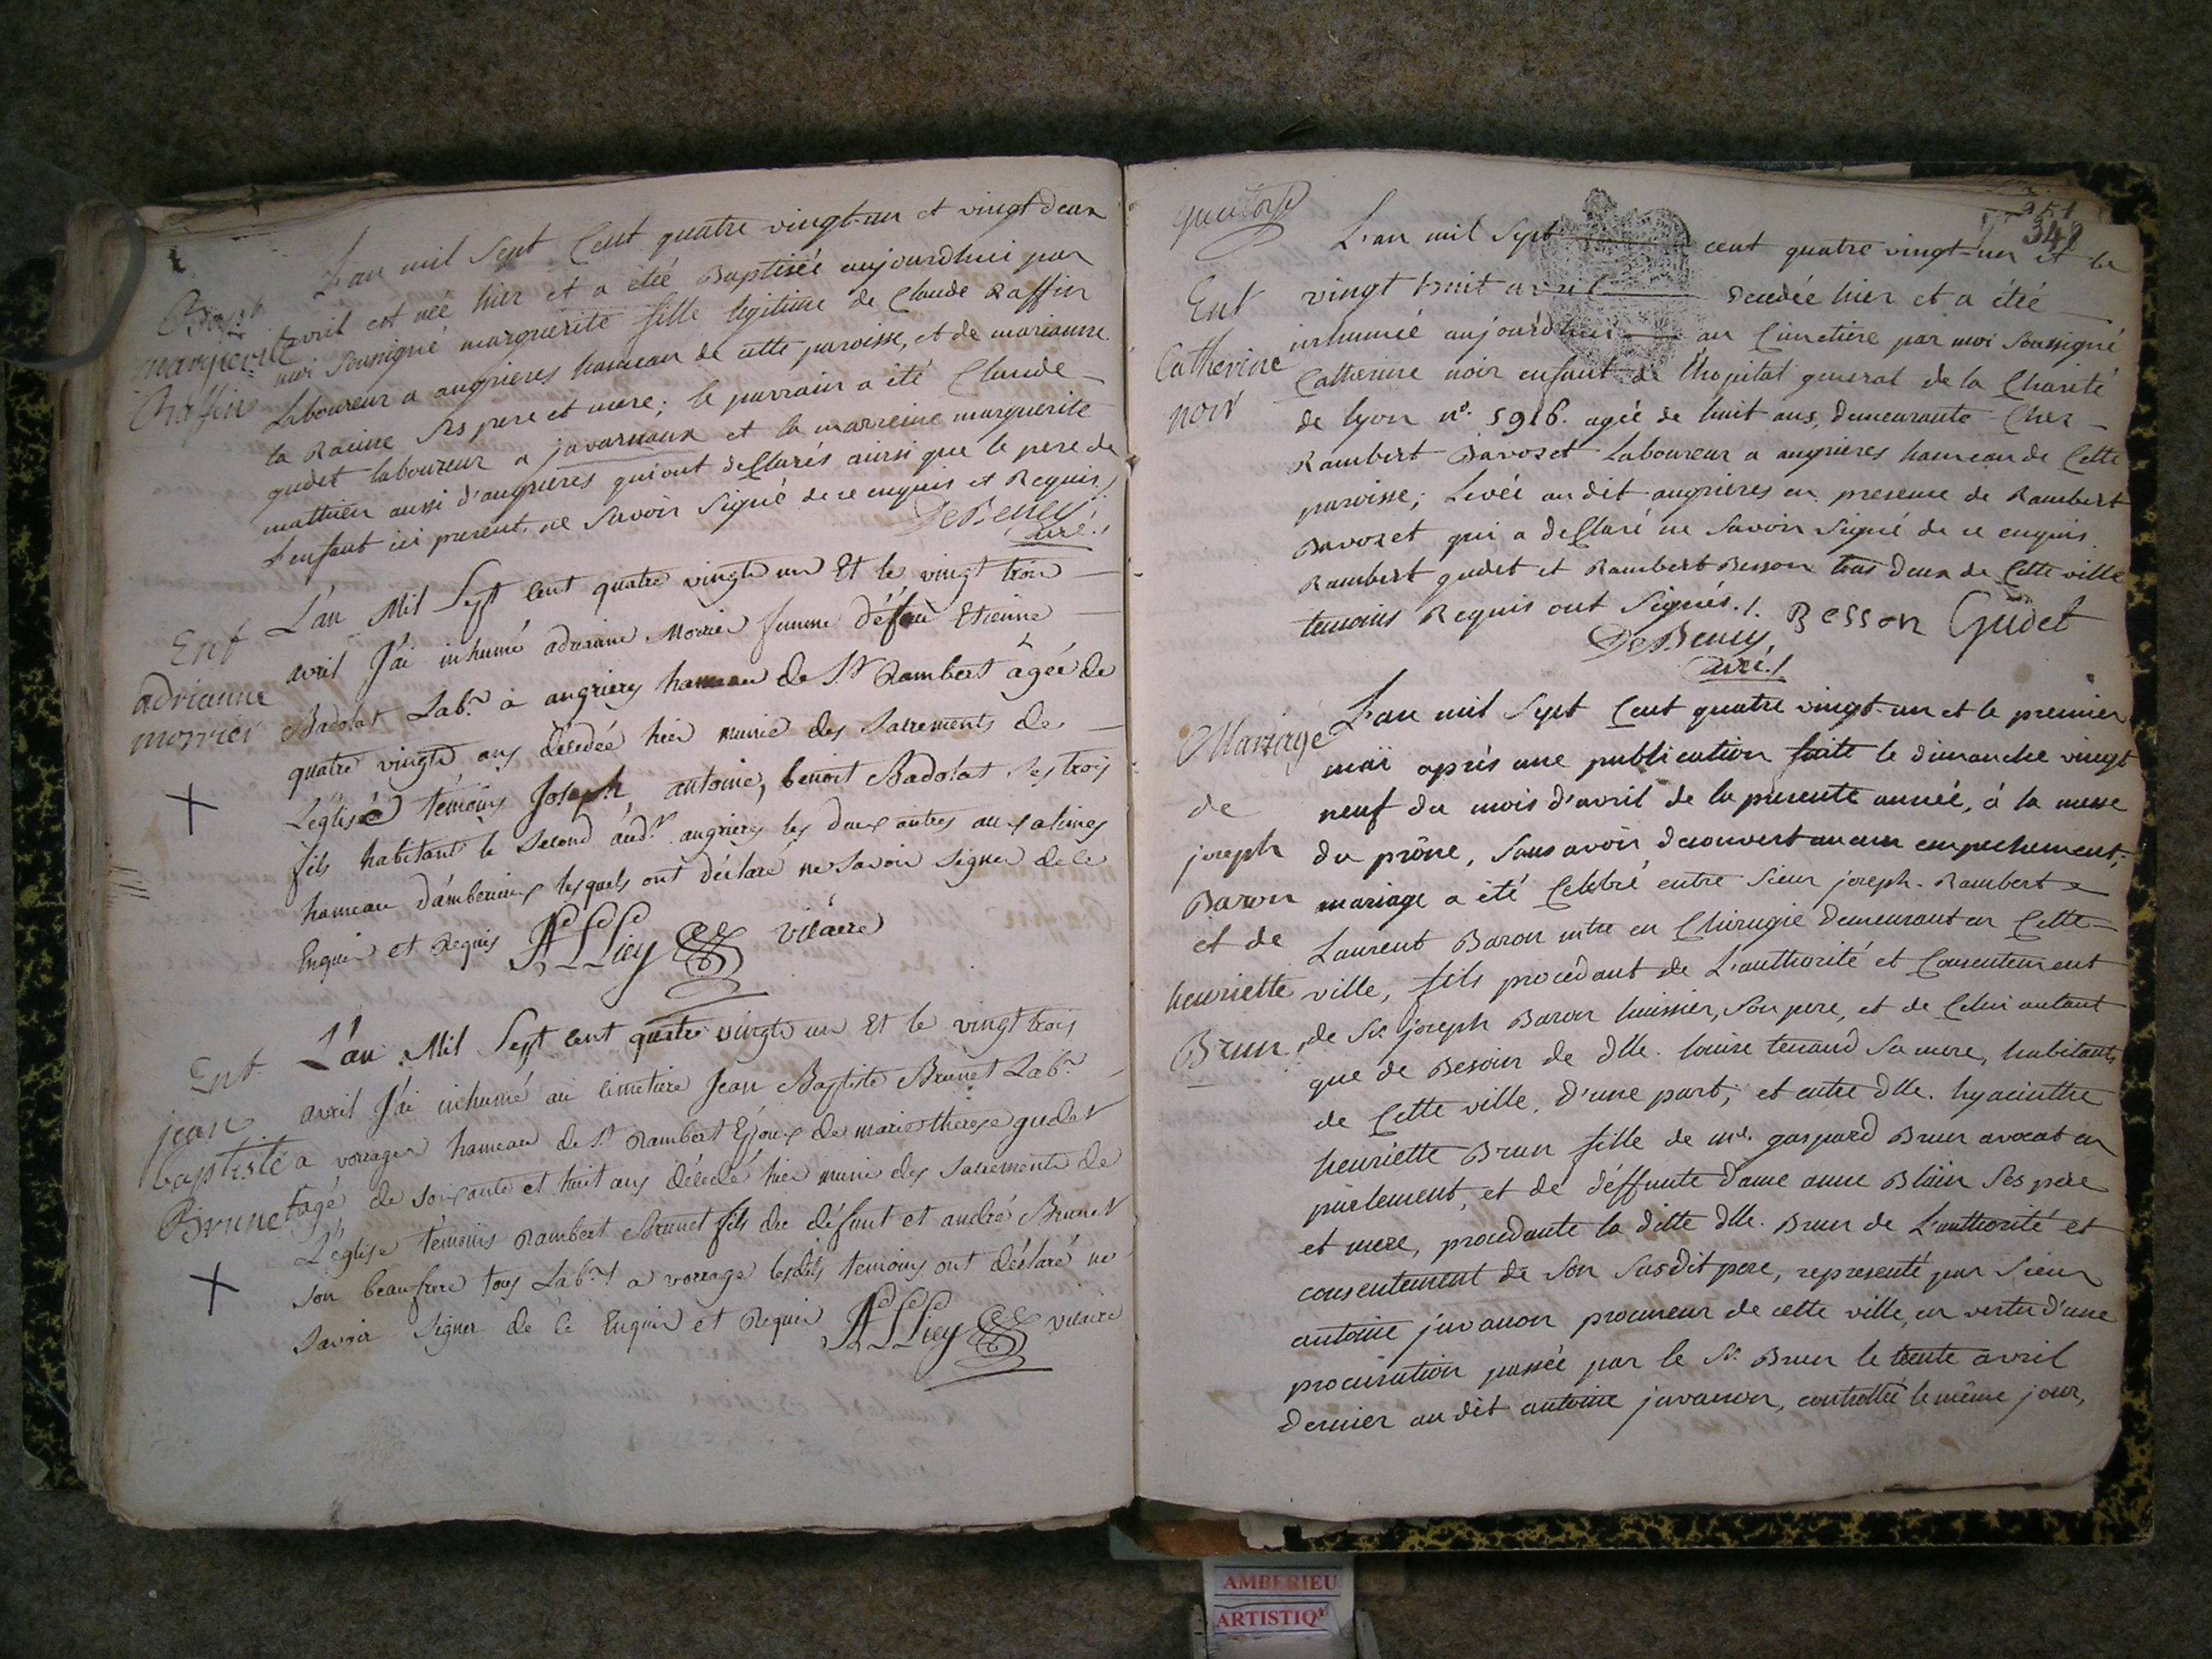 Bapt.
marguerite
Raffin
L'an mil Sept Cent quatre vingt-un et vingt deux
avril est née hier et a été Baptisée aujourdhui par
moi Soussigné marguerite fille legitime de Claude Raffin
Laboureur a angrieres hameau de cette paroisse, et de marianne
la Racine Ses pere et mere; le parrain a été Claude
gudet laboureur a javornoux et la marreine marguerite
mathieu aussi d'angrieres qui ont déClarés ainsi que le pere de
L'enfant ici present ne Savoir Signé de ce enquis et Requis./.
DeBeney
Curé./
Ent
adrianne
morrier
L'an Mil Sept Cent quatre vingt un Et le vingt trois
avril J'ai inhumé adrianne Morrier femme défeu Etienne
Badolat Labr. à angriery hameau de St Rambert âgée de
quatre vingts ans décédée hier munie des Sacrements de
L'église témoins Joseph, antoine, benoit Badolat les trois
fils habitants le Second audt. angriery les deux autres aux alimes
hameau d'ambérieux lesquels ont déclaré ne Savoir Signer de ce
Enquis et Requis vicaire
Ent
jean
baptiste
Brunet
L'an Mil Sept Cent quatre vingt un Et le vingt trois
avril J'ai inhumé au cimetiere Jean Baptiste Brunet Labr.
a vorrages hameau de St Rambert Epoux de marie therese gudet
âgé de soixante et huit ans décédé hier munie des Sacrements de
L'église temoins Rambert Brunet fils du défunt et andré Brunet
Son beaufrere tous Labrs. a vorrage lesdits temoins ont déclaré ne
Savoir Signer de ce Enquis et Requis vicaire
quatorze
351
348
Ent
Catherine
noir
L'an mil Sept cent quatre vingt-un et le
vingt huit avril decedée hier et a été
inhumée aujourdhui au Cimetiere par moi Soussigné
Catherine noir enfant de l'hopital general de la Charité
de lyon no. 5916. agée de huit ans, demeurante Chez
Rambert Davoset Laboureur a angrieres hameau de Cette
paroisse; Levée au dit angrieres en presence de Rambert
Davozet qui a deClaré ne Savoir Signé de ce enquis
Rambert gudet et Rambert Besson tous deux de Cette ville
temoins Requis ont Signés./. Besson Gudet
DeBeney
Curé./
Mariage
de
joseph
Baron
et de
henriette
Brun
L'an mil Sept Cent quatre vingt-un et le premier
maï après une publication faite le dimanche vingt
neuf du mois d'avril de la presente année, à la messe
du prône, Sans avoir decouvert aucun empechement;
mariage a été Celebré entre Sieur joseph-Rambert
Laurent Baron mtre en Chirugie demeurant en Cette
ville, fils procedant de L'authorité et Consentement
de Sr. joseph Baron huissier, Son pere, et de Celui autant
que de Besoin de dlle. louise tenand Sa mere, habitants
de Cette ville, d'une part, et entre dlle. hyacinthe
henriette Brun fille de me. gaspard Brun avocat en
parlement, et de déffunte dame anne Blain Ses pere
et mere, procedante la ditte dlle. Brun de L'authorité et
consentement de Son Susdit pere, representé par Sieur
antoine juvanon procureur de cette ville, en vertu d'une
procuration passée par le Sr. Brun le trente avril
dernier au dit antoine juvanon, controllée le même jour,
AMBERIEU
ARTISTIQ